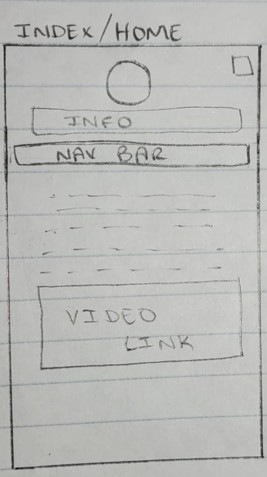 INDEX/HOME
INFO
NAV BAR
VIDEO
LINK